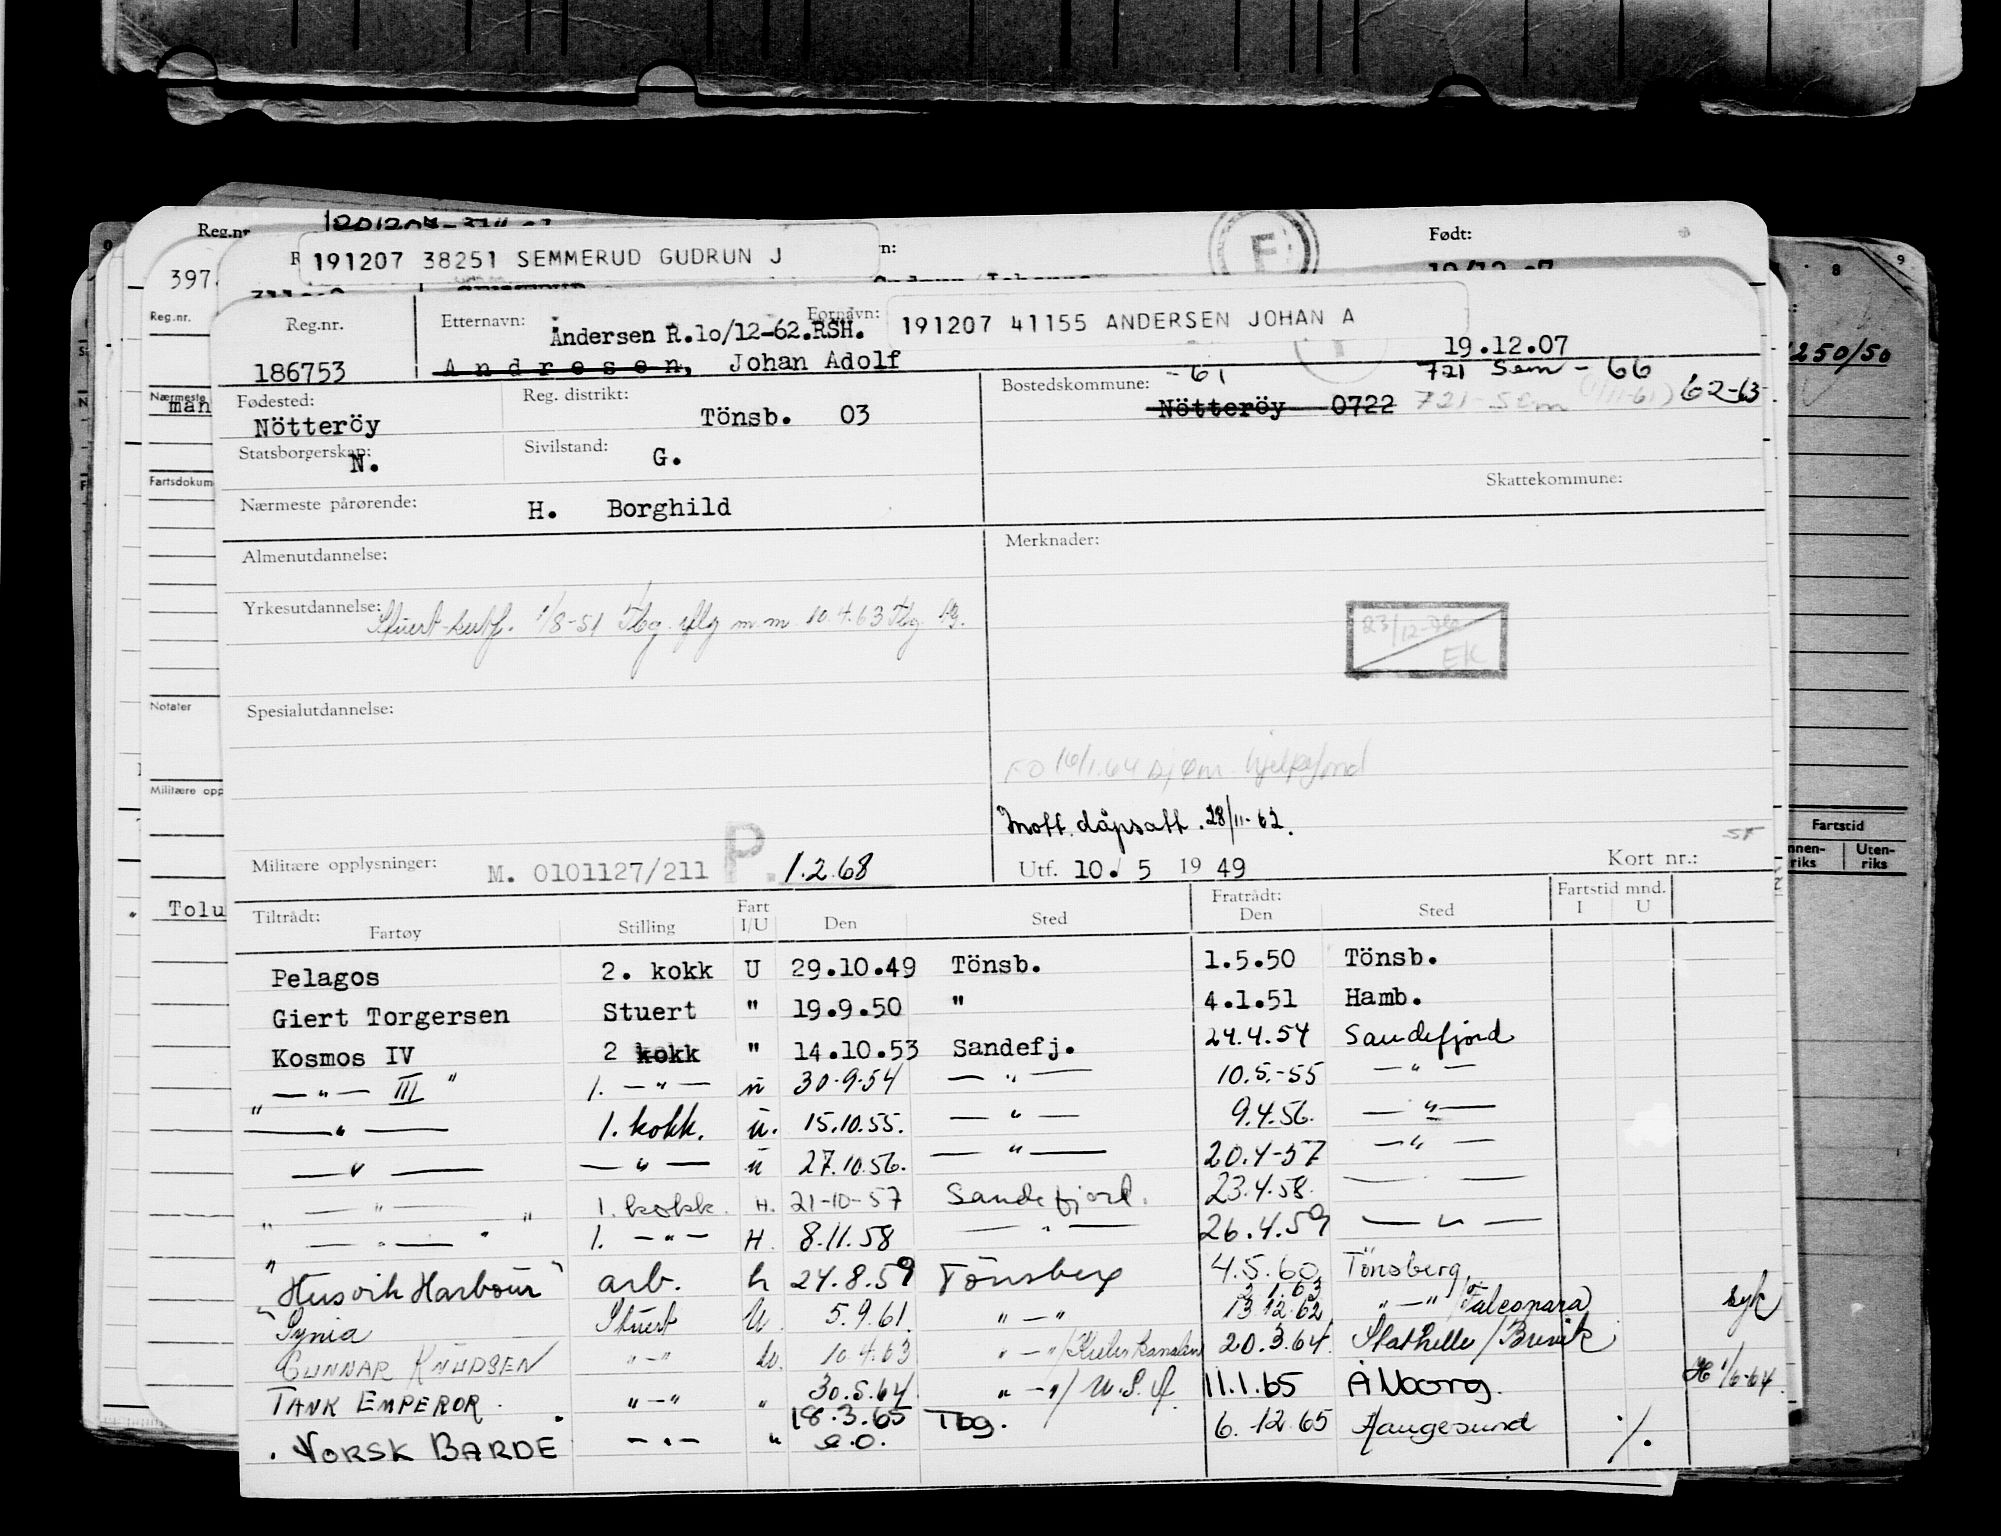 Reg.nr
Født:
191207 38251 SEMMERUD GUDRUN J
397
Reg.nr.
Reg.nr. Etternavn: Fornavn: 191207 41155 ANDERSEN JOHAN A
Andersen R.10/12-62.RSH. 19.12.07
186753 Andresen, Johan Adolf
-61 721 Sem - 66
Fødested: Reg. distrikt: Bostedskommune: 62-63
Nötteröy Tönsb. 03 Nötteröy 0722 721-Sem (1/11-61)
Statsborgerskap: N. Sivilstand: G.
Skattekommune:
Nærmeste pårørende: H. Borghild
Almenutdannelse: Merknader:
Yrkesutdannelse: Stuert-sertf. 1/8-51 Tbg. m.m. 10.4.63 Tbg.
23/12- EK
Spesialutdannelse:
FO 16/1.64 Sjøm. hjelpefond
Mott. dåpsatt. 28/11-62.
Militære opplysninger: M. 0101127/211 P. 1.2.68 Utf. 10. 5 19 49 Kort nr.:
Tiltrådt: Fratrådt: Fartstid mnd.
Fartøy Stilling Fart I/U Den Sted Den Sted I U
Pelagos 2. kokk U 29.10.49 Tönsb. 1.5.50 Tönsb.
Giert Torgersen Stuert " 19.9.50 " 4.1.51 Hamb.
Kosmos IV 2 kokk " 14.10.53 Sandefj. 24.4.54 Sandefjord
" — " — III " 1. — " — u 30.9.54 — " — 10.5.-55 — " —
— " — 1. kokk. u. 15.10.55. — " — 9.4.56. — " —
— " — — " — u 27.10.56. — " — 20.4-57 — " —
" — " — " 1. kokk. H. 21-10-57 Sandefjord. 23.4.58. — —
" — " — " 1. — " — H. 8.11.58 — " — 26.4.59 — " —
"Husvik Harbour" arb. h 24.8.59 Tönsberg 4.5.60 Tönsberg.
"Synia Stuert U. 5.9.61. " — " 3.1.63 13.12.62 " — " / Falconara syk
GUNNAR KNUDSEN " — " U. 10.4.63 " — " / Kielerkanalen 20.3.64. Stathelle / Brevik
TANK EMPEROR. " — " " 30.5.64. " — " / U.S.A. 11.1.65 Ålborg. 1/6-64
. NORSK BARDE — " — " 18.3.65 e.o. Tbg. 6.12.65 Haugesund ./.
Nærmeste
man
Fartsdokum
Notater
Militære opp
Tolu
8 9
250/50
Fartstid
nnen-riks Uten-riks